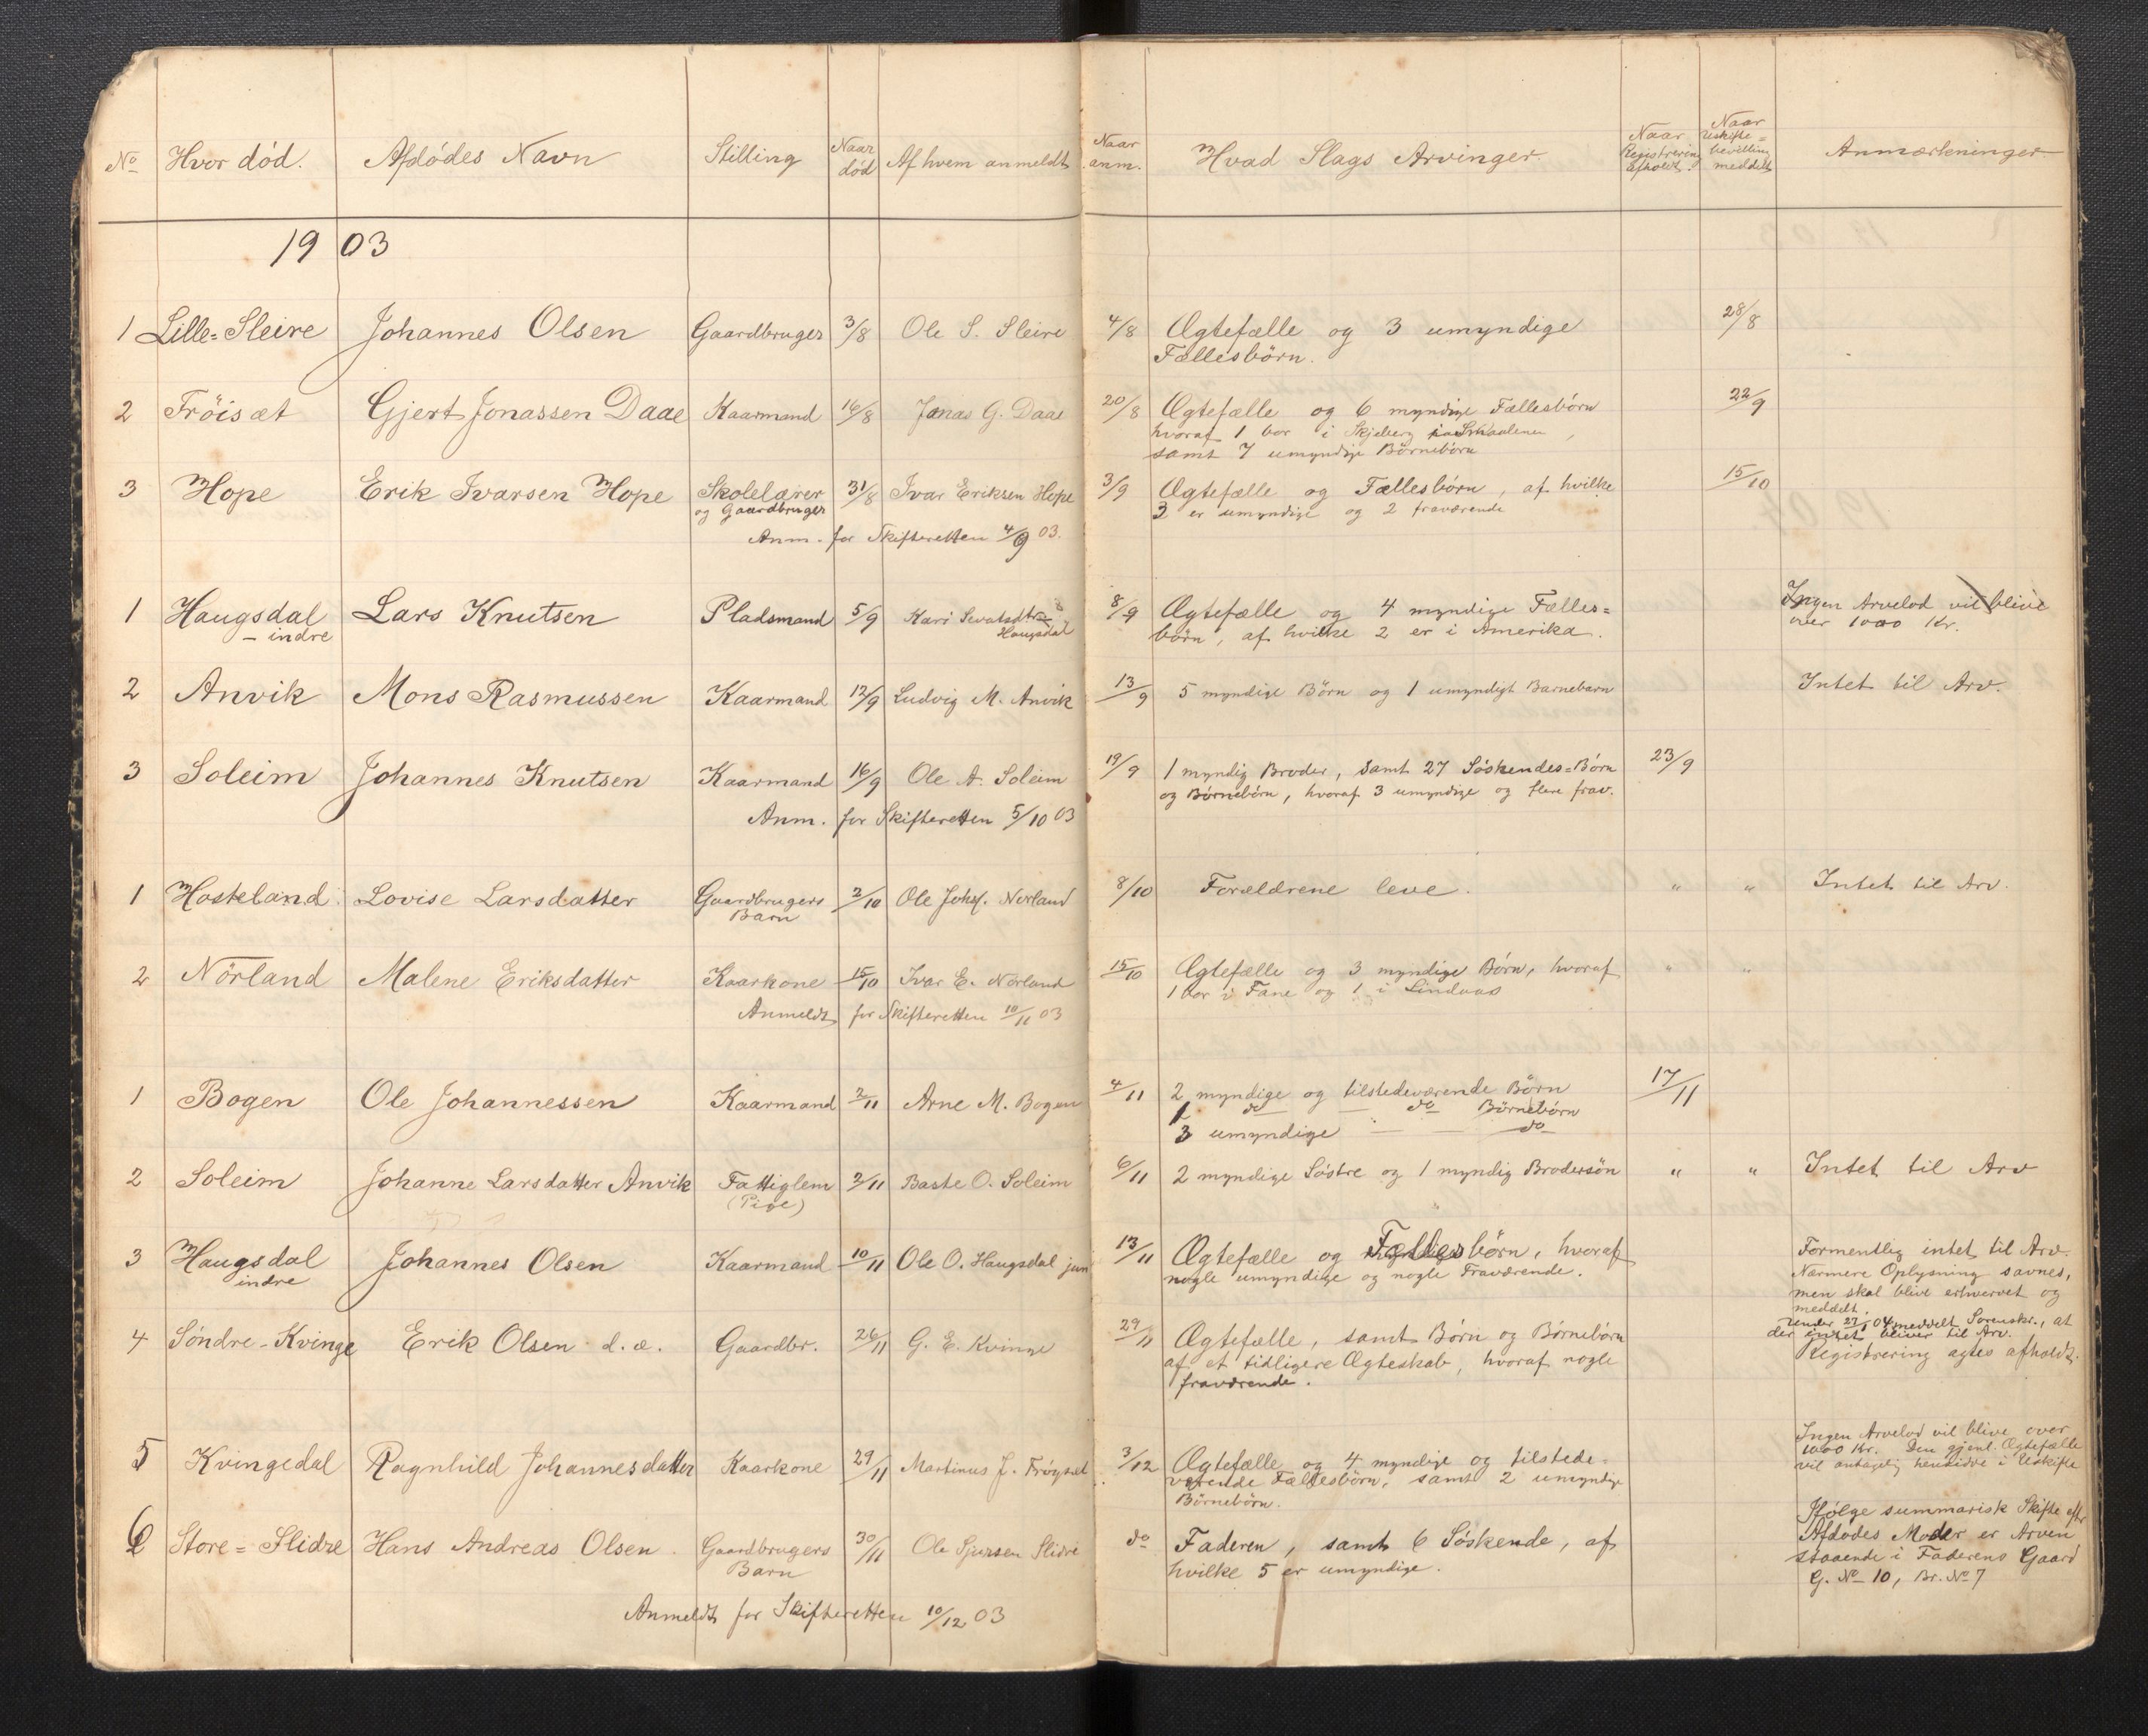 No Hvor död. Afdödes Navn Stilling Naar död Af hvem anmeldt Naar anm. Hvad Slags Arvinger. Naar Registrering afholdt. Naar Uskifte=bevilling meddelt Anmærkninger
1903
1 Lille=Sleire Johannes Olsen Gaardbruger 3/8 Ole S. Sleire 4/8 Ægtefælle og 3 umyndige 28/8
Fællesbörn.
2 Fröisæt Gjert Jonassen Daae Kaarmand 16/8 Jonas G. Daae 20/8 Ægtefælle og 6 myndige Fællesbörn 22/9
hvoraf 1 bor i Skjeberg
samt 7 umyndige Börnebörn
3 Hope Erik Ivarsen Hope Skolelærer 31/8 Ivar Eriksen Hope 3/9 Ægtefælle og Fællesbörn, af hvilke 15/10
og Gaardbruger 3 er umyndige og 2 fraværende
Anm. for Skifteretten 4/9 03.
1 Haugsdal Lars Knutsen Pladsmand 5/9 Kari 8/9 Ægtefælle og 4 myndige Fælles= Ingen Arvelod vil blive
- indre Haugsdal börn, af hvilke 2 er i Amerika. over 1000 Kr.
2 Anvik Mons Rasmussen Kaarmand 12/9 Ludvig M. Anvik 13/9 5 myndige Börn og 1 umyndigt Barnebarn Intet til Arv.
3 Soleim Johannes Knutsen Kaarmand 16/9 Ole A. Soleim 19/9 1 myndig Broder, samt 27 Söskendes=Börn 23/9
og Börnebörn, hvoraf 3 umyndige og flere frav.
Anm. for Skifteretten 5/10 03
1 Hosteland Lovise Larsdatter Gaardbrugers 2/10 Ole Johs. Norland 8/10 Forældrene leve. " " Intet til Arv.
Barn
2 Nörland Malene Eriksdatter Kaarkone 15/10 Ivar E. Nörland 15/10 Ægtefælle og 3 myndige Börn, hvoraf " "
1 bor i Fane og 1 i Lindaas
Anmeldt for Skifteretten 10/11 03
1 Bogen Ole Johannessen Kaarmand 2/11 Arne M. Bogen 4/11 2 myndige og tilstedeværende Börn 17/11
1 do — do Börnebörn
3 umyndige — — do
2 Soleim Johanne Larsdatter Anvik Fattiglem 2/11 Baste O. Soleim 6/11 2 myndige Söstre og 1 myndig Brodersön " " Intet til Arv
(Pige)
3 Haugsdal Johannes Olsen Kaarmand 10/11 Ole O. Haugsdal jun 13/11 Ægtefælle og Fællesbörn, hvoraf Formentlig intet til Arv.
indre nogle umyndige og nogle Fraværende. Nærmere Oplysning savnes,
men skal blive erhvervet og
meddelt.
under 27/1 04 meddelt Sorenskr., at
der intet bliver til Arv.
4 Söndre-Kvinge Erik Olsen d.æ. Gaardbr. 26/11 G. E. Kvinge 29/11 Ægtefælle, samt Börn og Börnebörn Registrering agtes afholdt.
af et tidligere Ægteskab, hvoraf nogle
fraværende.
5 Kvingedal Ragnhild Johannesdatter Kaarkone 29/11 Martinus J. Fröysæt 3/12 Ægtefælle og 4 myndige og tilstede- Ingen Arvelod vil blive over
værende Fællesbörn, samt 2 umyndige 1000 Kr. Den gjenl. Ægtefælle
Börnebörn. vil antagelig hensidde i Uskifte
6 Store=Slidre Hans Andreas Olsen Gaardbrugers 30/11 Ole Sjursen Slidre do Faderen, samt 6 Söskende, af Ifölge summarisk Skifte eftr
Barn hvilke 5 er umyndige. Afdödes Moder er Arven
staaende i Faderens Gaard
G. No 10, Br. No 7
Anmeldt for Skifteretten 10/12 03